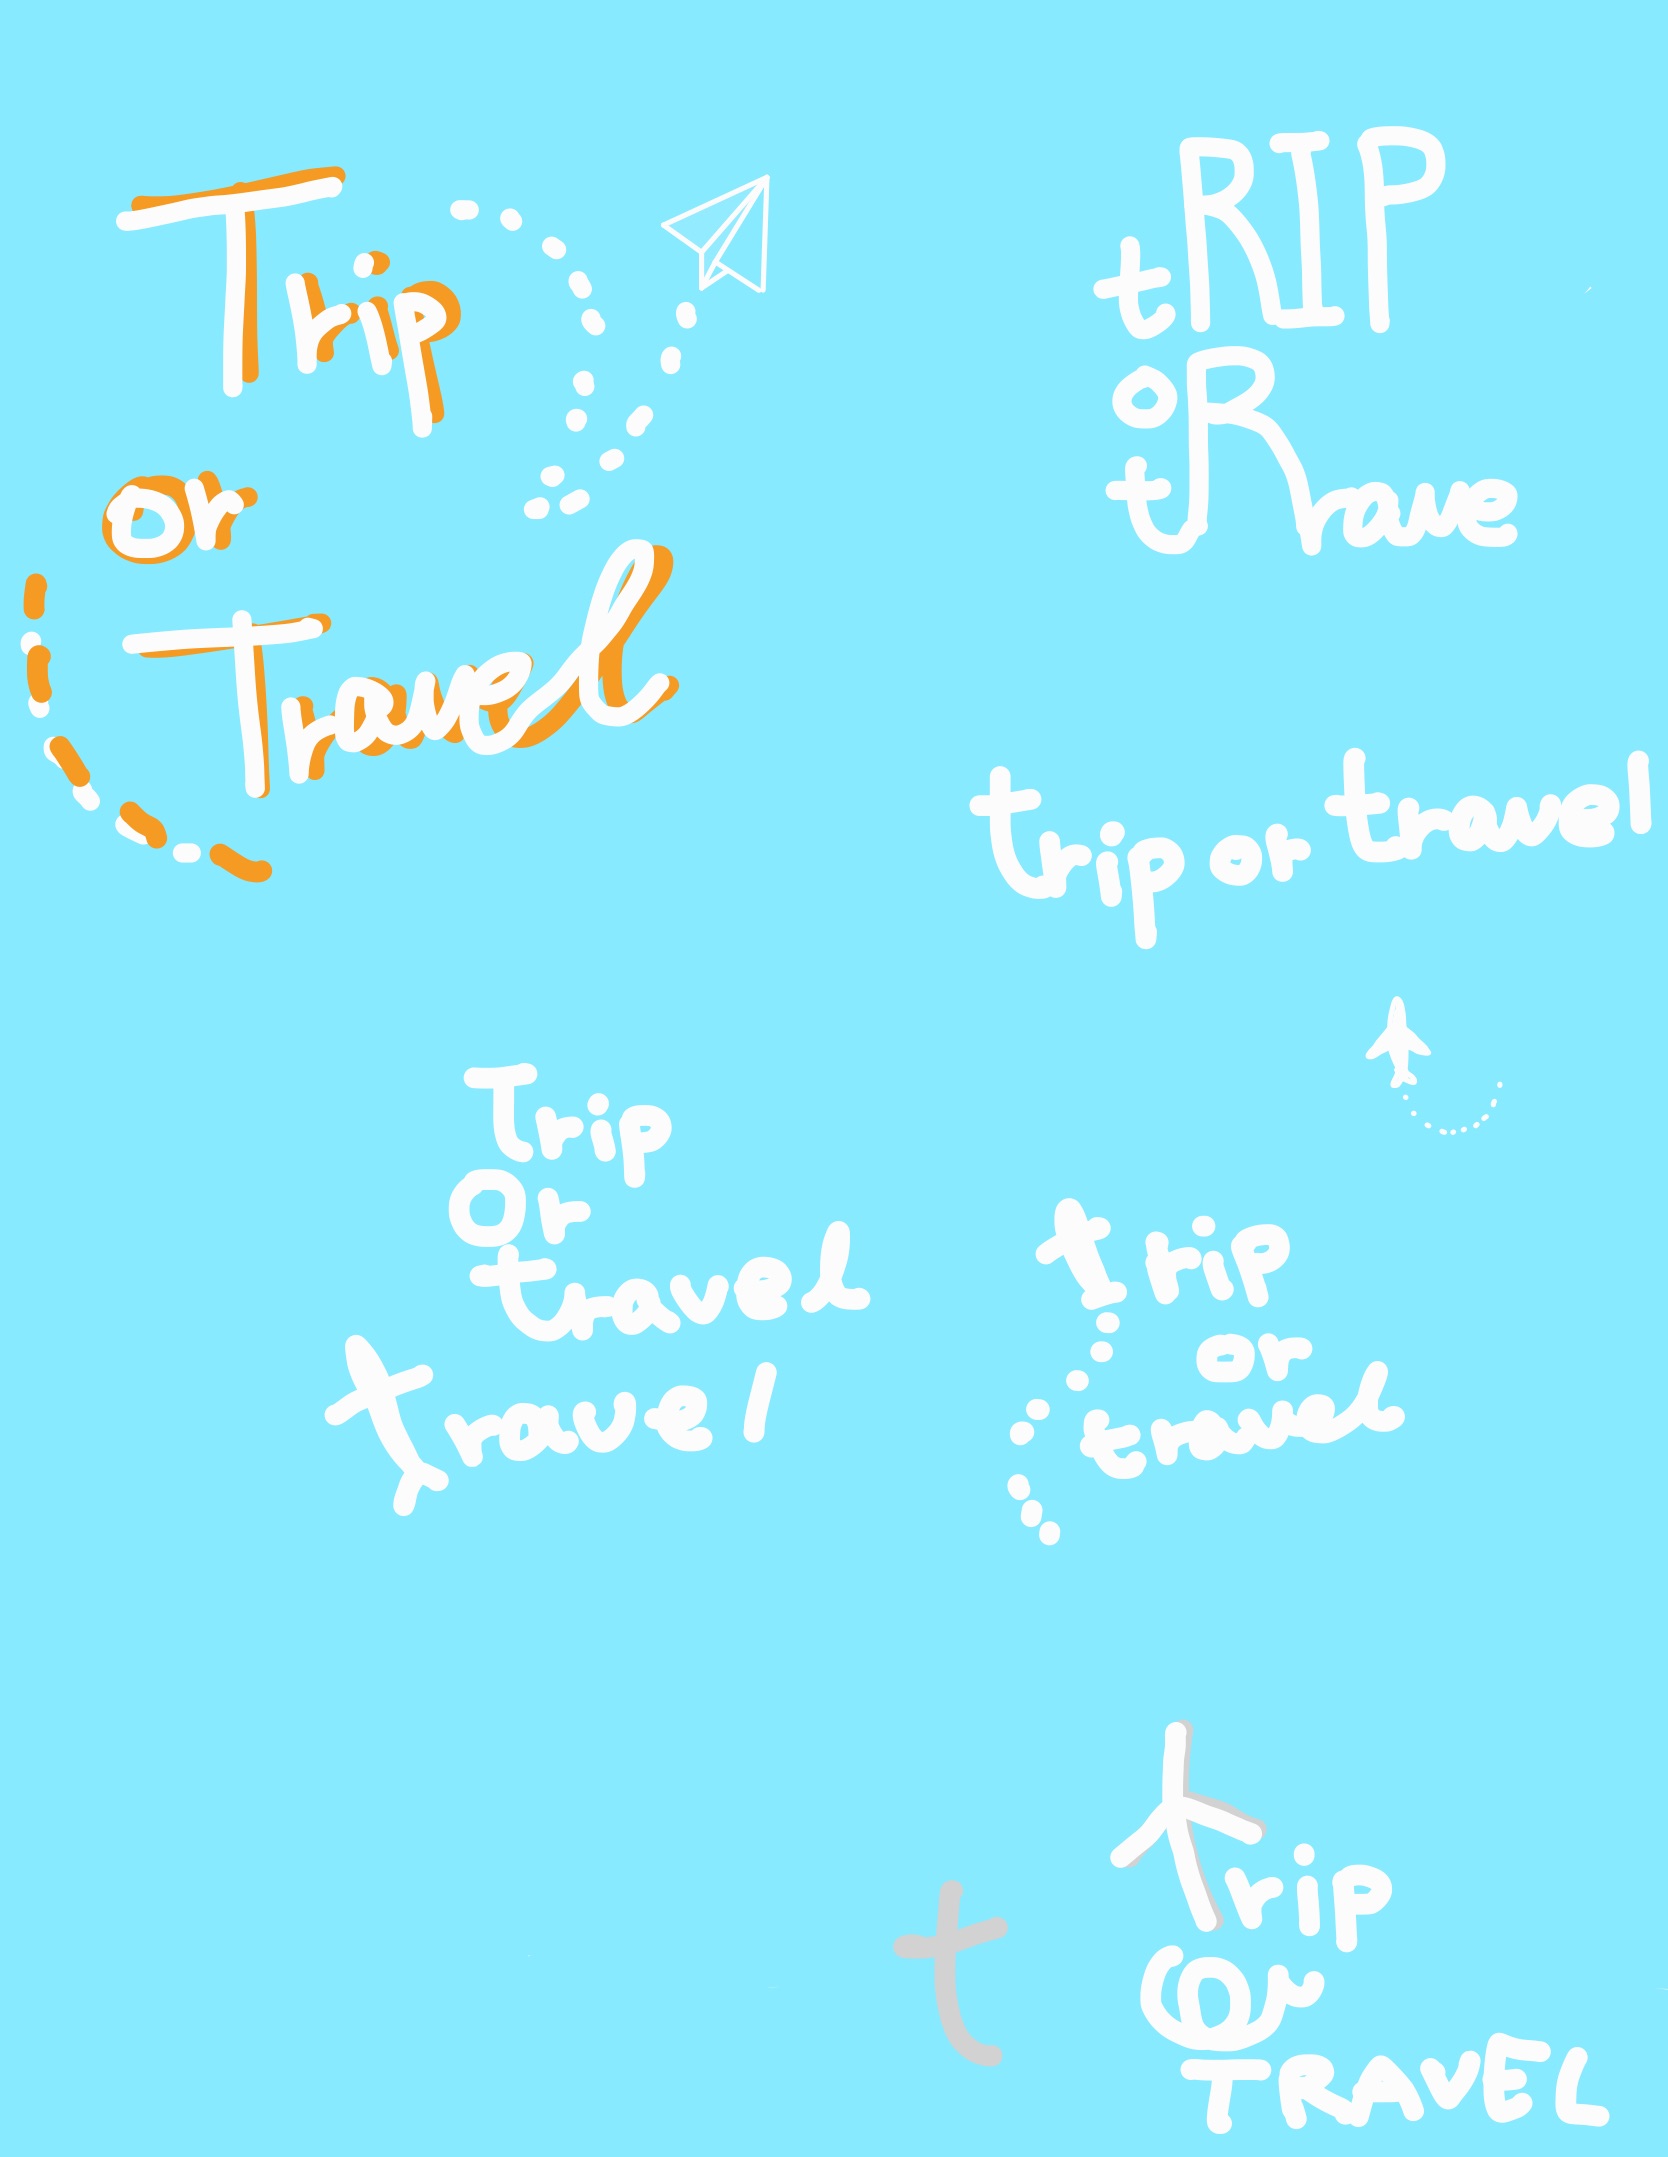 Trip
or
Travel
tRIP
oR
trave
trip or travel
Trip
Or
travel
travel
trip
or
travel
t
Trip
Or
TRAVEL